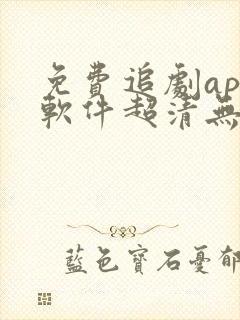 免費追劇ap
軟件超清無
藍色寶石憂郁